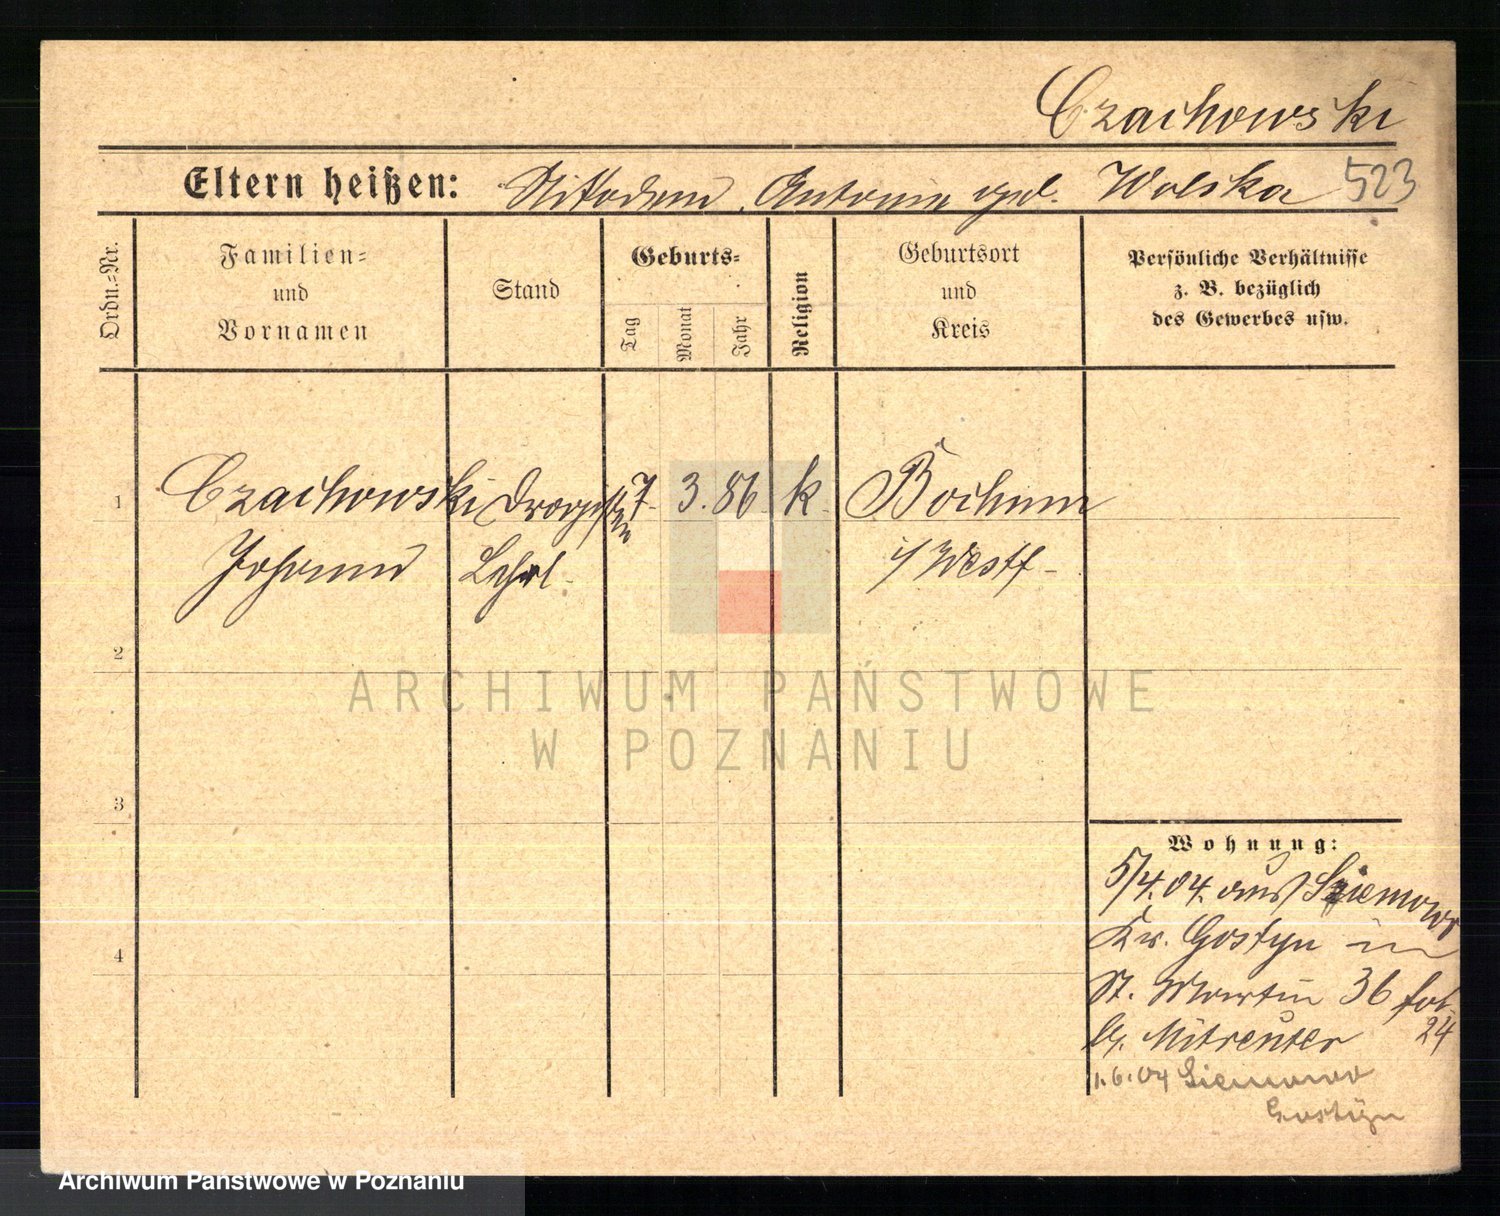 Czachowski
Eltern heißen: Nikodem, Antonie geb. Wolska 523
Ordn.-Nr.
Familien-
und
Vornamen
Stand
Geburts-
Tag
Monat
Jahr
Religion
Geburtsort
und
Kreis
Persönliche Verhältnisse
z. B. bezüglich
des Gewerbes usw.
1 Czachowski Drogisten 7. 3. 86 k. Bochum
Johann Lehrl. i/ Westf.
2
ARCHIWUM PAŃSTWOWE
W POZNANIU
3
Wohnung:
5/4.04. aus Siemowo
Kr. Gostyn in
St. Martin 36
b. Mitreuter 24
4
1.6.04 Siemowo
Gostyn
Archiwum Państwowe w Poznaniu